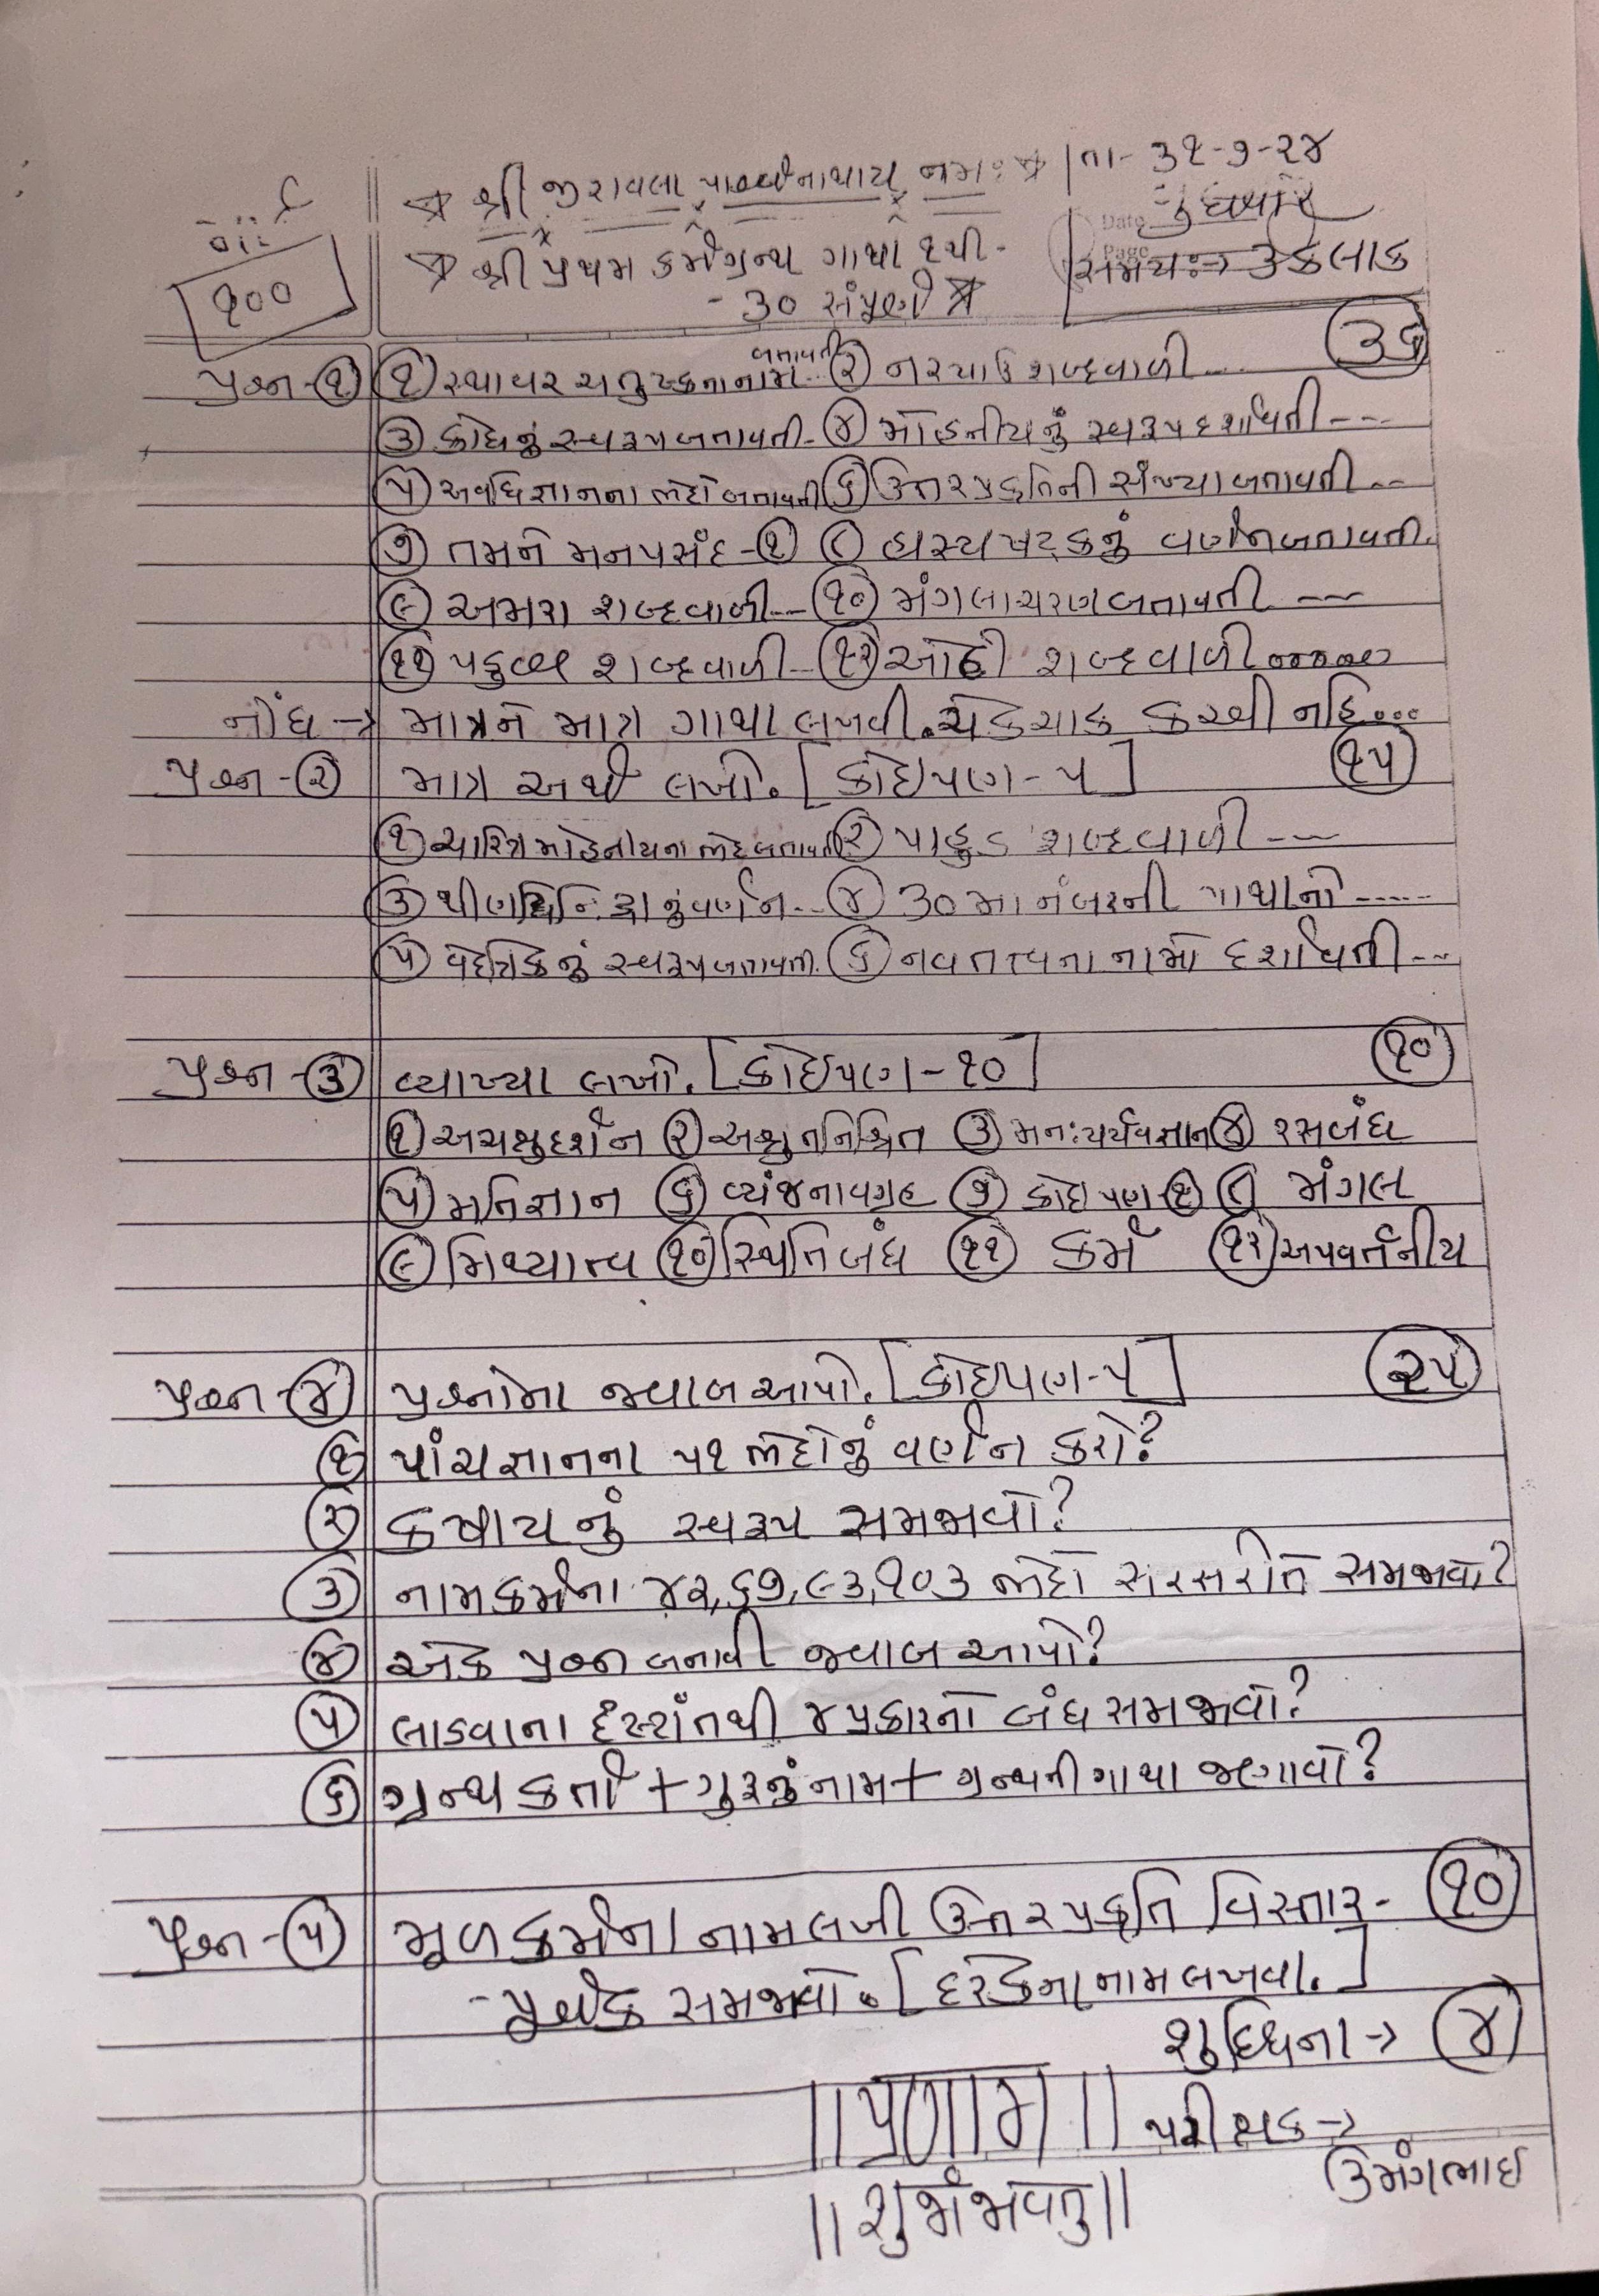 ★ શ્રી જીરાવલા પાર્શ્વનાથાય નમઃ ★ તા- ૩૧-૭-૨૪
બુધવાર
Date
Page
★ શ્રી પ્રથમ કર્મગ્રન્થ ગાથા ૧થી - સમયઃ→ ૩ કલાક
૧૦૦ - ૩૦ સંપૂર્ણ ★
પ્રશ્ન-૧ ૧ સ્થાવર ચતુષ્કના નામ બતાવતી.. ૨ નરયાઉ શબ્દવાળી.... ૩૬
૩ ક્રોધનું સ્વરૂપ બતાવતી- ૪ મોહનીયનું સ્વરૂપ દર્શાવતી ---
૫ અવધિજ્ઞાનના ભેદો બતાવતી ૬ ઉત્તરપ્રકૃતિની સંખ્યા બતાવતી...
૭ તમને મનપસંદ-૧ ૮ હાસ્યષટ્કનું વર્ણન બતાવતી.
૯ અમરા શબ્દવાળી-- ૧૦ મંગલાચરણ બતાવતી ---
૧૧ પડુવ્વ શબ્દવાળી-- ૧૨ ઓહી શબ્દવાળી .......
નોંધ → માત્રને માત્ર ગાથા લખવી. ચેકચાક કરવી નહિ...
પ્રશ્ન-૨ માત્ર અર્થ લખો. [કોઈપણ-૫] ૧૫
૧ ચારિત્રમોહનીયના ભેદ બતાવતી ૨ પાહુડ શબ્દવાળી ---
૩ થીણદ્ધિનિદ્રાનું વર્ણન... ૪ ૩૦મા નંબરની ગાથાનો .....
૫ વેદત્રિકનું સ્વરૂપ બતાવતી. ૬ નવતત્ત્વના નામો દર્શાવતી ---
પ્રશ્ન-૩ વ્યાખ્યા લખો. [કોઈપણ-૧૦] ૧૦
૧ અચક્ષુદર્શન ૨ અશ્રુતનિશ્રિત ૩ મનઃપર્યવજ્ઞાન ૪ રસબંધ
૫ મતિજ્ઞાન ૬ વ્યંજનાવગ્રહ ૭ કોઈપણ-૧ ૮ મંગલ
૯ મિથ્યાત્વ ૧૦ સ્થિતિબંધ ૧૧ કર્મ ૧૨ અપવર્તનીય
પ્રશ્ન-૪ પ્રશ્નોના જવાબ આપો. [કોઈપણ-૫] ૨૫
૧ પાંચજ્ઞાનના ૫૧ ભેદોનું વર્ણન કરો?
૨ કષાયનું સ્વરૂપ સમજાવો?
૩ નામકર્મના ૪૨,૬૭,૯૩,૧૦૩ ભેદો સરસરીતે સમજાવો?
૪ એક પ્રશ્ન બનાવી જવાબ આપો?
૫ લાડવાના દૃષ્ટાંતથી ૪પ્રકારનો બંધ સમજાવો?
૬ ગ્રન્થકર્તા + ગુરૂનું નામ + ગ્રન્થની ગાથા જણાવો?
પ્રશ્ન-૫ મૂળકર્મના નામ લખી ઉત્તરપ્રકૃતિ વિસ્તાર- ૧૦
-પૂર્વક સમજાવો. [દરેકના નામ લખવા.]
શુદ્ધિના → ૪
||પ્રણામ|| પરીક્ષક→
ઉમંગભાઈ
||શુભંભવતુ||